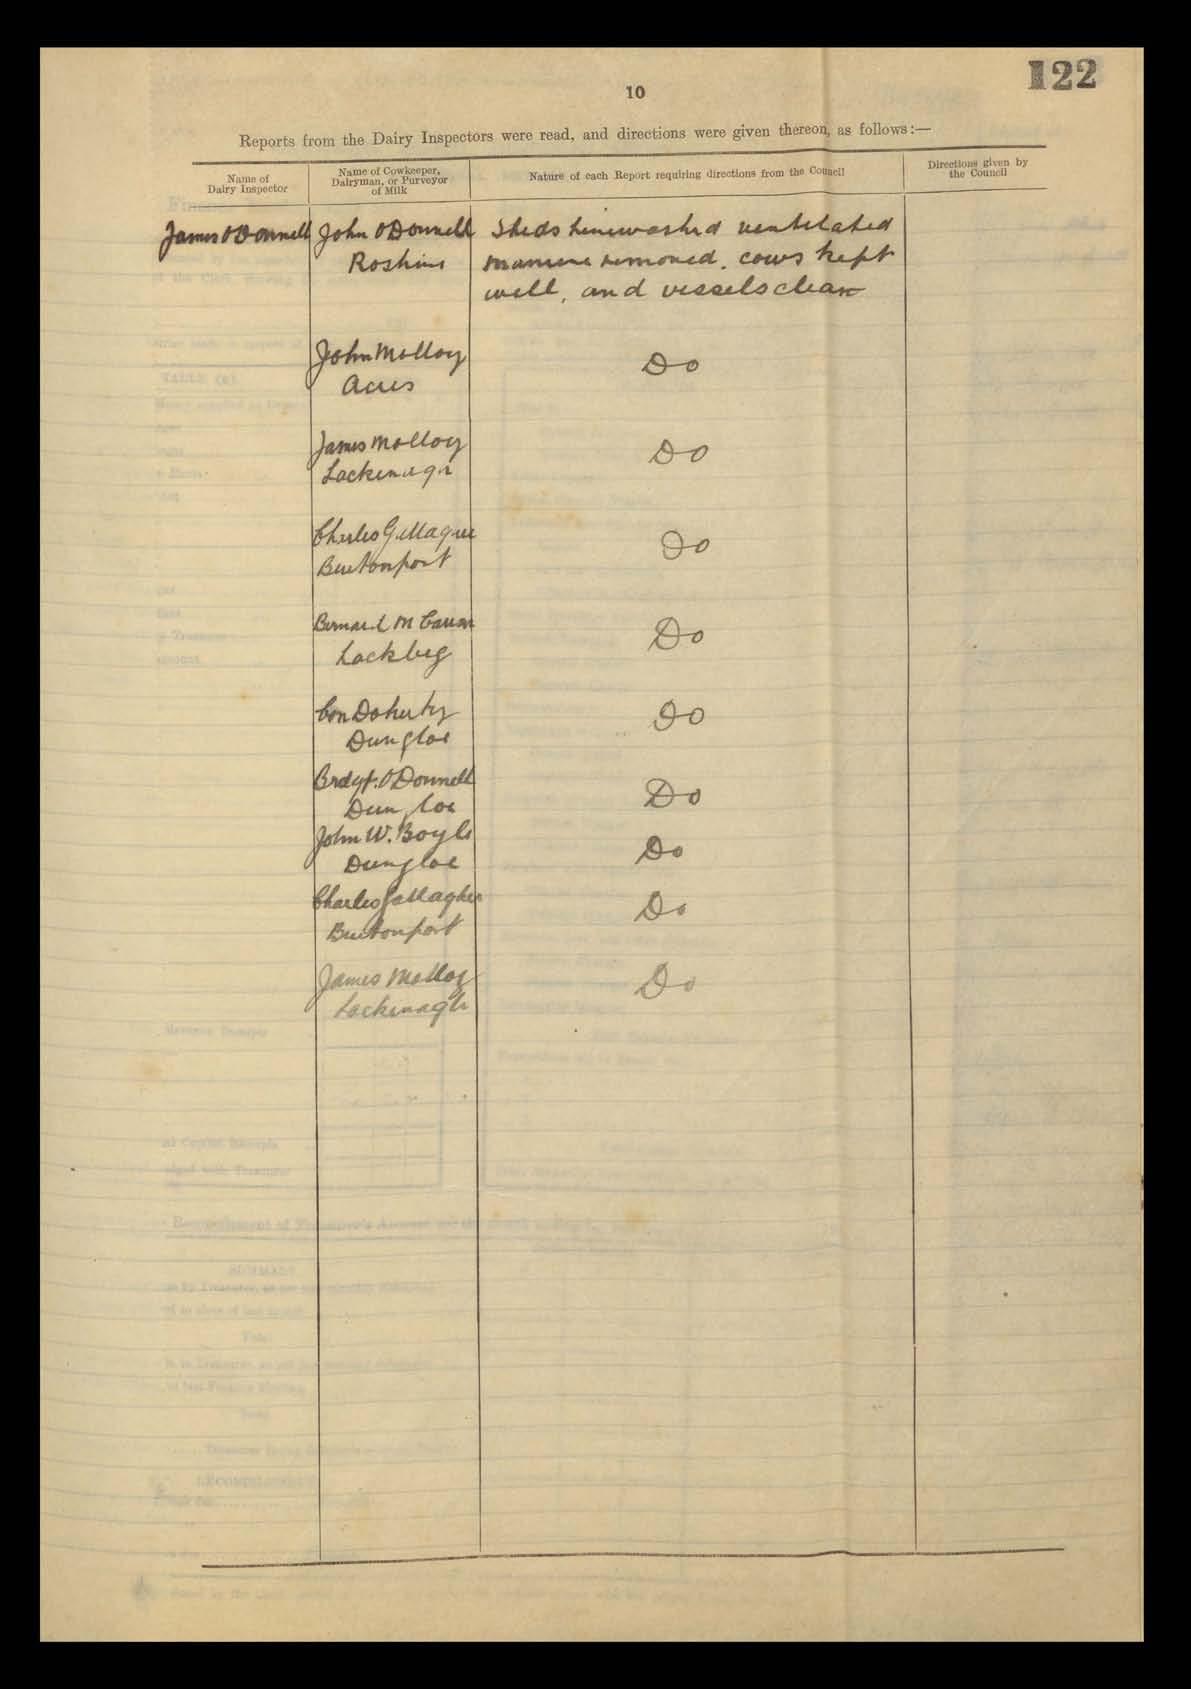 122
10
Reports from the Dairy Inspectors were read, and directions were given thereon, as follows:—
Name of
Dairy Inspector
Name of Cowkeeper,
Dairyman, or Purveyor
of Milk
Nature of each Report requiring directions from the Council
Directions given by
the Council
James O'Donnell John O'Donnell Sheds limewashed ventilated
Roshine manure removed. cows kept
well, and vessels clean
John Molloy Do
Acres
James Molloy Do
Lackenagh
Charles Gallagher Do
Burtonport
Bernard Do
Lackbeg
Con Doherty Do
Dungloe
Bridgt. O'Donnell Do
Dungloe
John W. Boyle Do
Dungloe
Charles Gallagher Do
Burtonport
James Molloy Do
Lackenagh